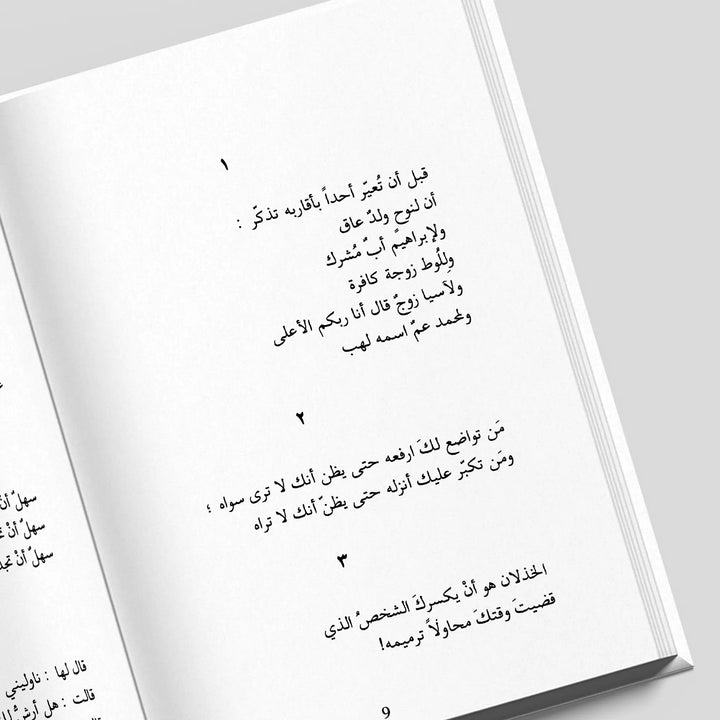 ١
قبل أن تُعيّر أحداً بأقاربه تذكّر :
أن لنوح ولدٌ عاق
ولإبراهيم أبٌ مُشرك
وللُوط زوجة كافرة
ولآسيا زوجٌ قال أنا ربكم الأعلى
ولمحمد عمٌ اسمه لهب
٢
مَن تواضع لكَ ارفعه حتى يظن أنك لا ترى سواه ؛
ومَن تكبّر عليك أنزله حتى يظنّ أنك لا تراه
٣
الخذلان هو أنْ يكسركَ الشخصُ الذي
قضيتَ وقتكَ محاولاً ترميمه!
9
سهلٌ
سهلٌ أنْ
سهلٌ أنْ
قال لها : ناوليني
قالت : هل